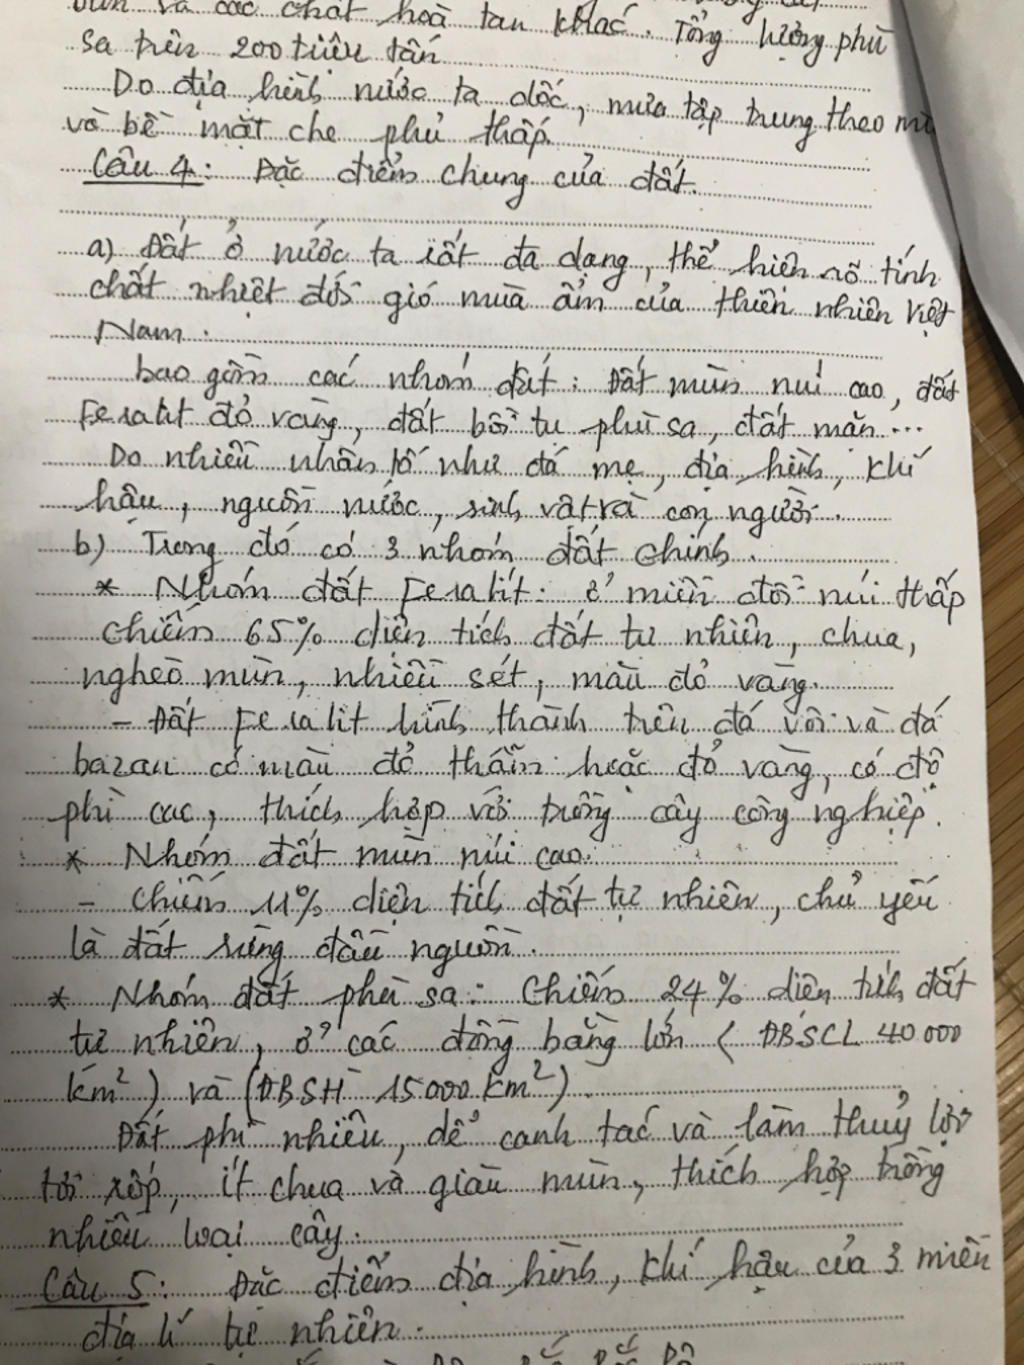 bùn và các chất hoà tan khác. Tổng lượng phù
sa trên 200 triệu tấn
Do địa hình nước ta dốc, mưa tập trung theo
và bề mặt che phủ thấp
Câu 4: Đặc điểm chung của đất.
a) Đất ở nước ta rất đa dạng, thể hiện rõ tính
chất nhiệt đới gió mùa ẩm của thiên nhiên Việt
Nam.
bao gồm các nhóm đất: Đất mùn núi cao, đất
Feralit đỏ vàng, đất bồi tụ phù sa, đất mặn...
Do nhiều nhân tố như đá mẹ, địa hình, khí
hậu, nguồn nước, sinh vật và con người.
b) Trong đó có 3 nhóm đất chính.
* Nhóm đất Feralit: ở miền đồi núi thấp
chiếm 65% diện tích đất tự nhiên, chua,
nghèo mùn, nhiều sét, màu đỏ vàng.
- Đất Feralit hình thành trên đá vôi và đá
bazan có màu đỏ thẫm hoặc đỏ vàng, có độ
phì cao, thích hợp với trồng cây công nghiệp.
* Nhóm đất mùn núi cao:
- Chiếm 11% diện tích đất tự nhiên, chủ yếu
là đất rừng đầu nguồn.
* Nhóm đất phù sa: Chiếm 24% diện tích đất
tự nhiên, ở các đồng bằng lớn (ĐBSCL 40 000
km²) và (ĐBSH 15000 km²).
Đất phì nhiêu, dể canh tác và làm thuỷ lợi
tơi xốp, ít chua và giàu mùn, thích hợp trồng
nhiều loại cây.
Câu 5: Đặc điểm địa hình, khí hậu của 3 miền
địa lí tự nhiên.